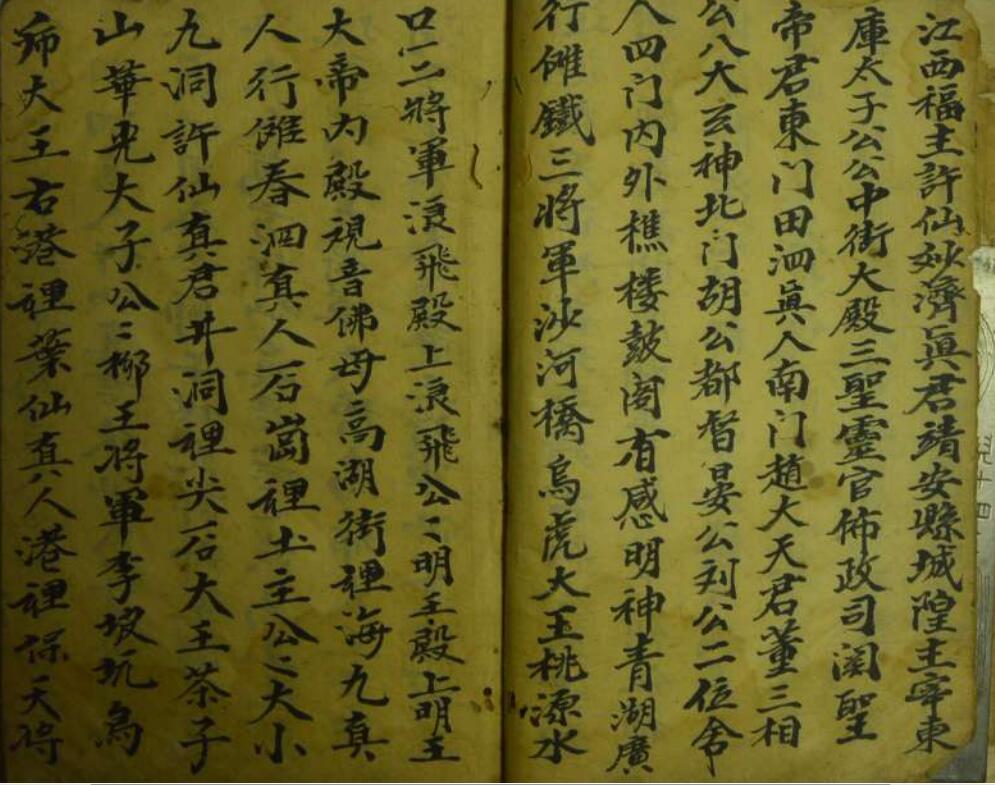 江西福主許仙妙濟眞君靖安縣城隍主宰東
庫太子公公中街大殿三聖靈官佈政司関聖
帝君東门田泗眞人南门趙大天君董三相
公八大玄神北门胡公都督晏公刘公二位舍
人四门内外樵楼鼓阁有感明神青湖廣
行傩鐵三将軍沙河橋烏虎大王桃源水
口一二將軍浪飛殿上浪飛公〻明王殿上明王
大帝内殿視音佛母高湖街裡海九真
人行傩春泗真人石崗裡土主公〻大小
九洞許仙真君井洞裡尖石大王茶子
山華光大子公〻柳王将軍李坡坑烏
师大王右港裡葉仙真人港裡保天将